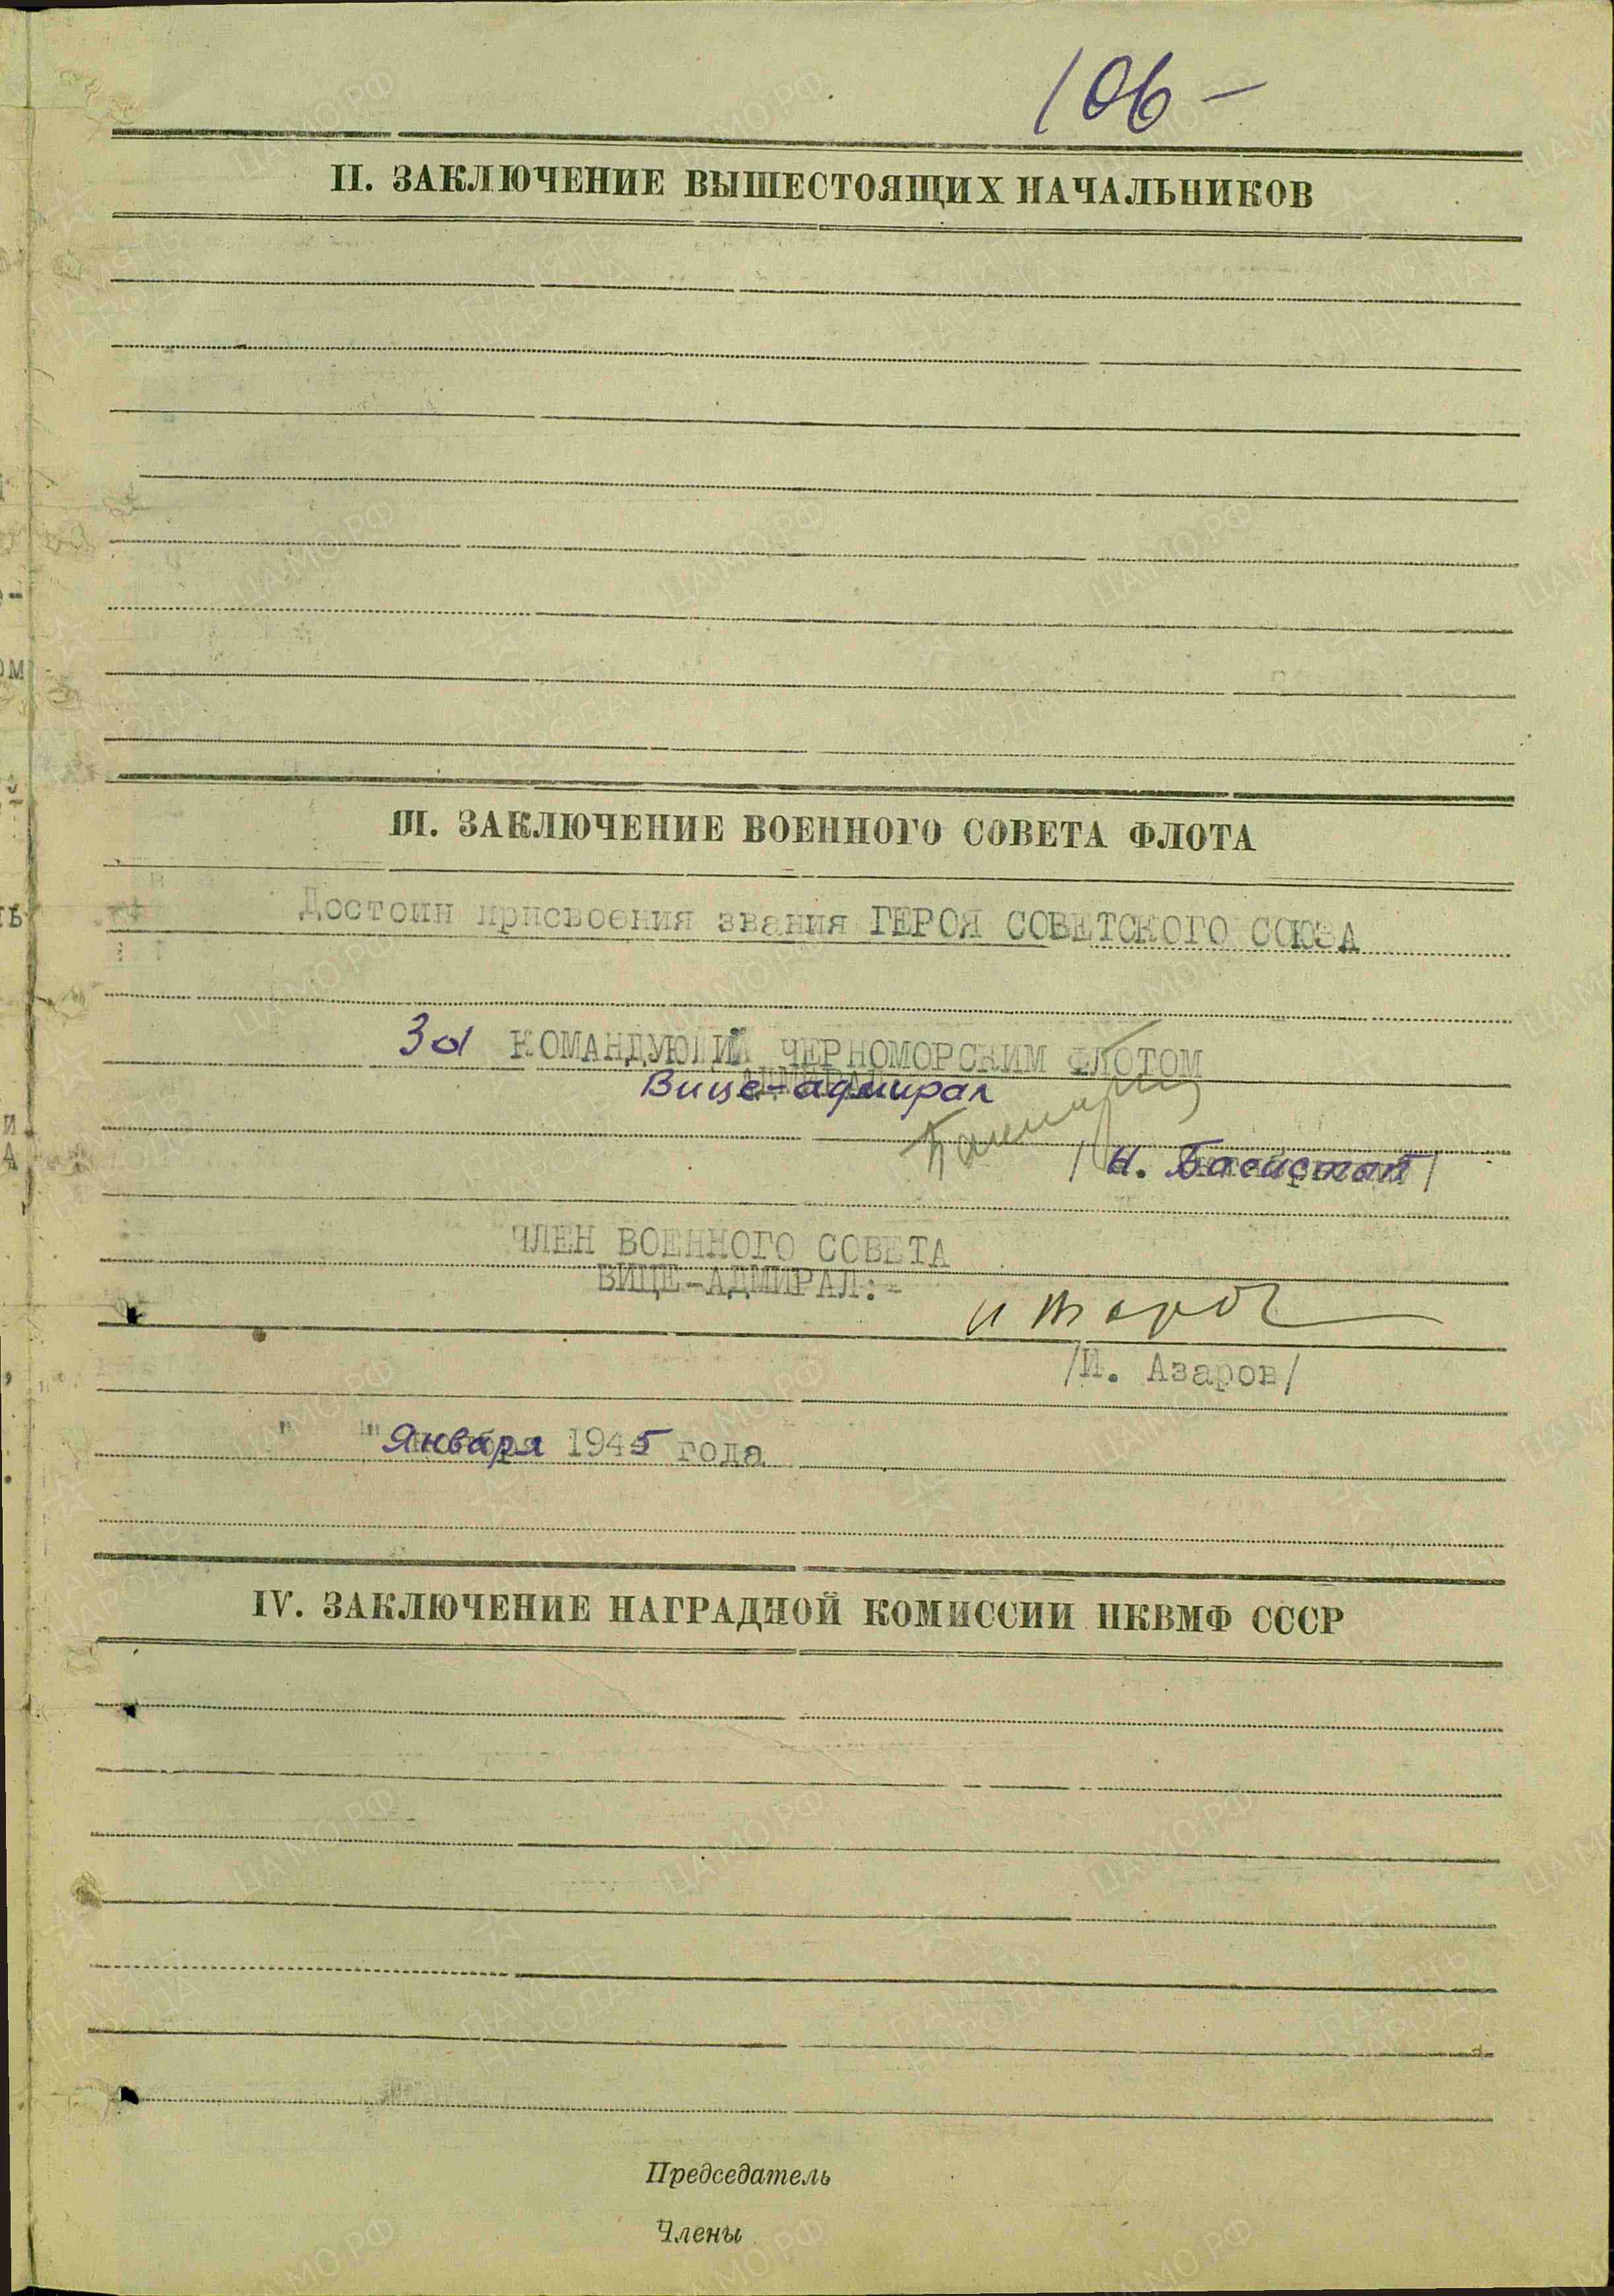 106-
II. ЗАКЛЮЧЕНИЕ ВЫШЕСТОЯЩИХ НАЧАЛЬНИКОВ
III. ЗАКЛЮЧЕНИЕ ВОЕННОГО СОВЕТА ФЛОТА
Достоин присвоения звания ГЕРОЯ СОВЕТСКОГО СОЮЗА
За КОМАНДУЮЩИЙ ЧЕРНОМОРСКИМ ФЛОТОМ
Вице-адмирал
/Н. Басистый/
ЧЛЕН ВОЕННОГО СОВЕТА
ВИЦЕ-АДМИРАЛ:-
/И. Азаров/
" " Января 1945 года
IV. ЗАКЛЮЧЕНИЕ НАГРАДНОЙ КОМИССИИ НКВМФ СССР
Председатель
Члены